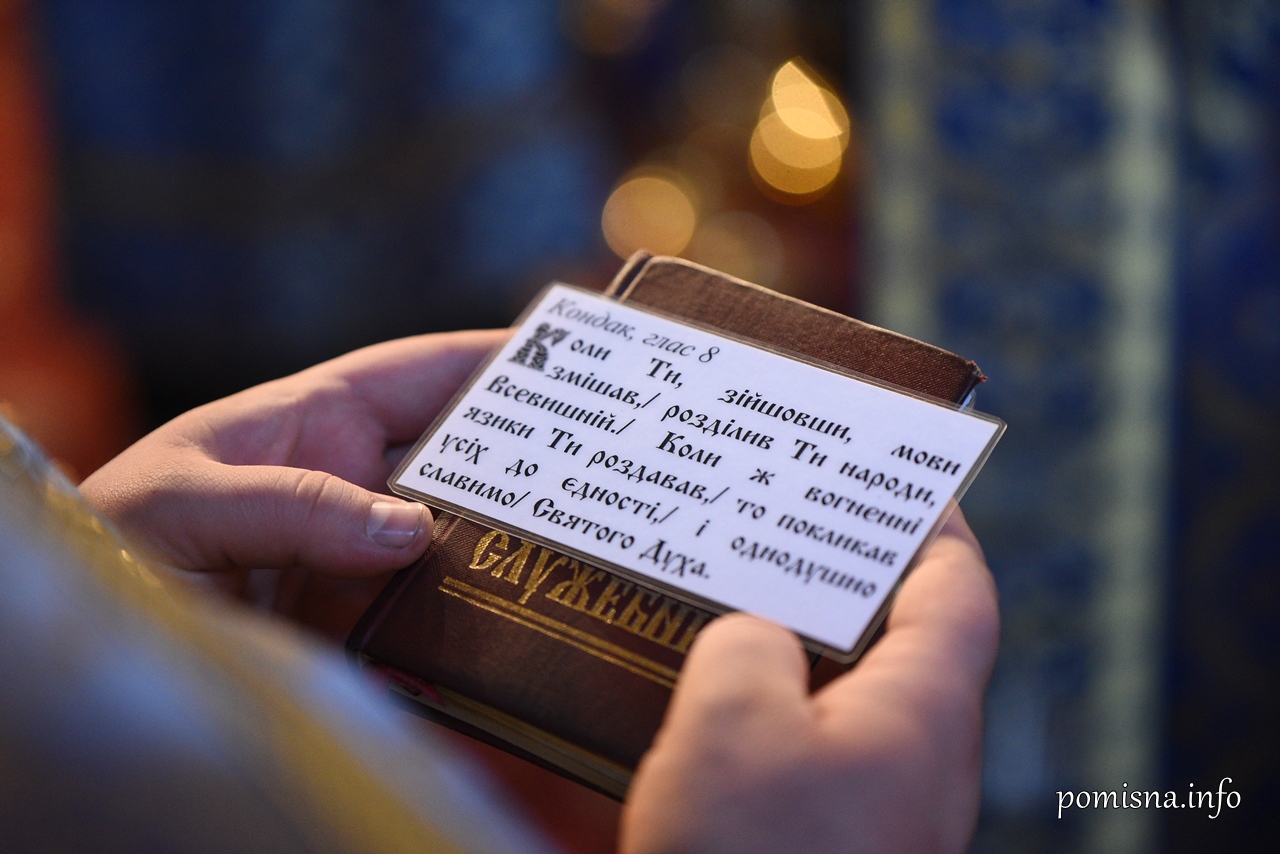 Кондак, глас 8
Коли Ти, зійшовши, мови
змішав,/ розділив Ти народи,
Всевишній./ Коли ж вогненні
язики Ти роздавав,/ то покликав
усіх до єдності,/ і однодушно
славимо/ Святого Духа.
СЛУЖЕБНИ
pomisna.info